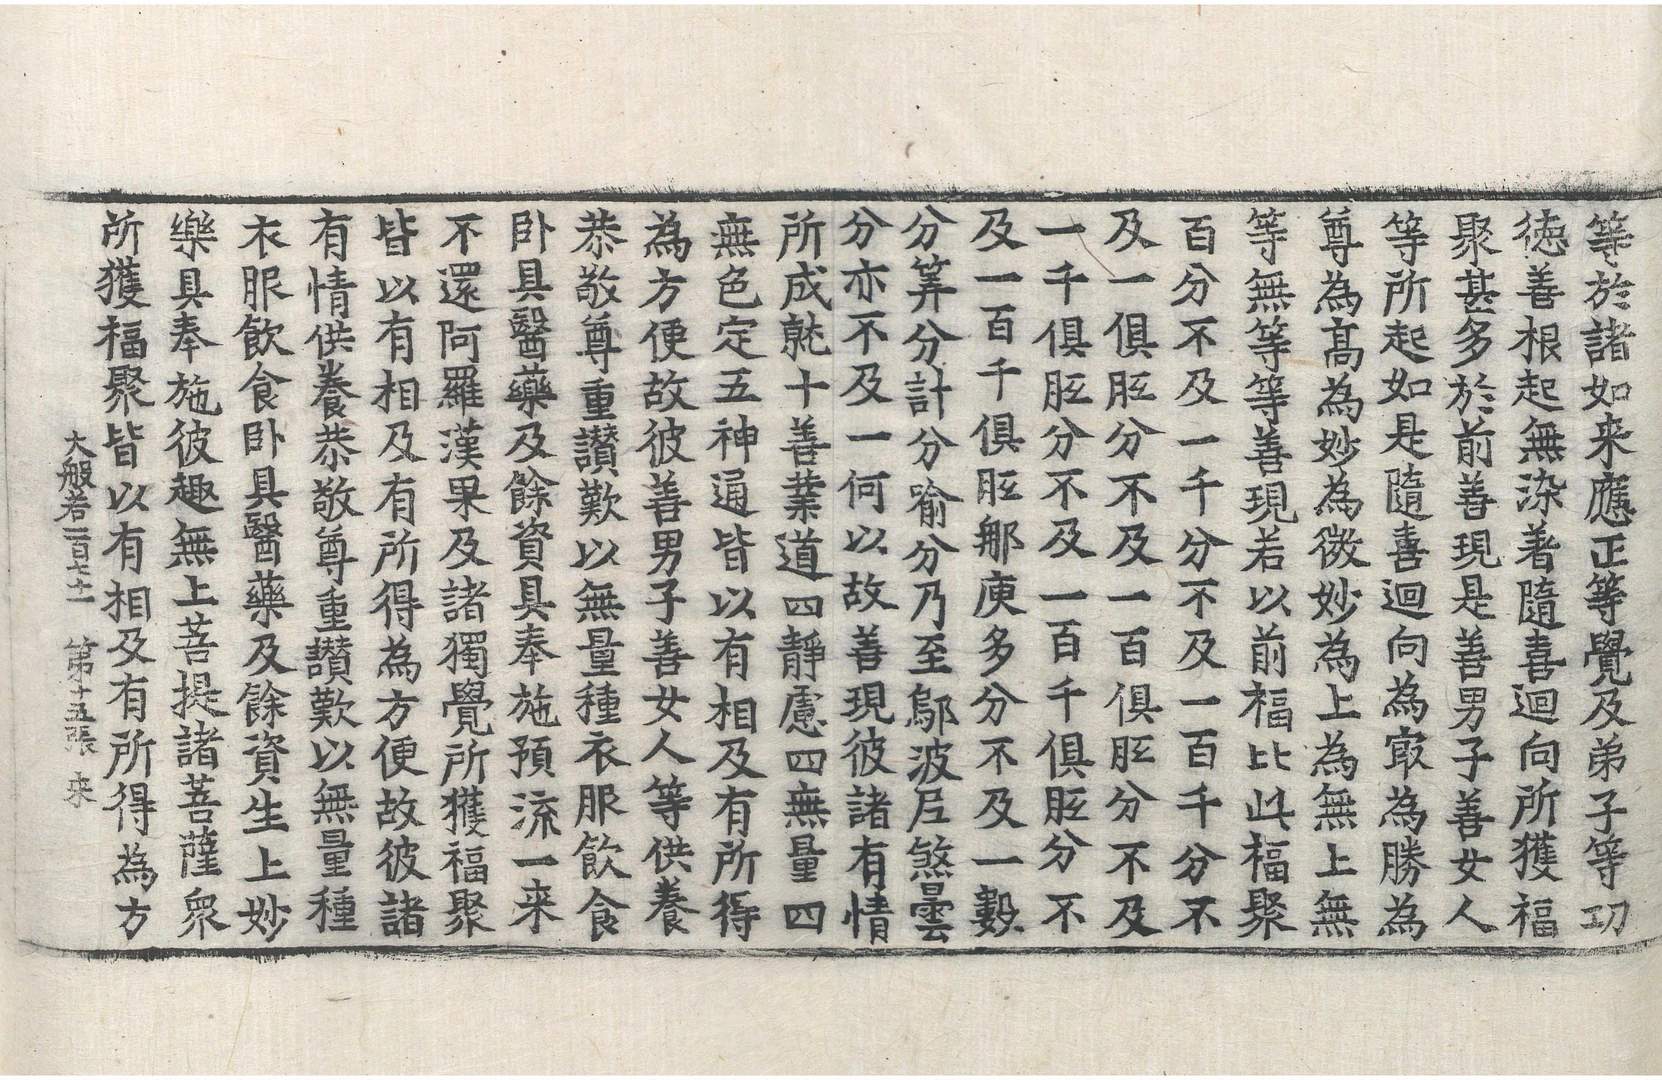 等於諸如来應正等覺及弟子等功
徳善根起無染著隨喜迴向所獲福
聚甚多於前善現是善男子善女人
等所起如是隨喜迴向為㝡為勝為
尊為髙為妙為微妙為上為無上無
等無等等善現若以前福比此福聚
百分不及一千分不及一百千分不
及一俱胝分不及一百俱胝分不及
一千俱胝分不及一百千俱胝分不
及一百千俱胝那庾多分不及一數
分筭分計分喻分乃至鄔波尼煞曇
分亦不及一何以故善現彼諸有情
所成就十善業道四靜慮四無量四
無色定五神通皆以有相及有所得
為方便故彼善男子善女人等供養
恭敬尊重讃歎以無量種衣服飲食
卧具醫藥及餘資具奉施預流一来
不還阿羅漢果及諸獨覺所獲福聚
皆以有相及有所得為方便故彼諸
有情供養恭敬尊重讃歎以無量種
衣服飲食卧具醫藥及餘資生上妙
樂具奉施彼趣無上菩提諸菩薩衆
所獲福聚皆以有相及有所得為方
大般若一百七十一 第十五張 来